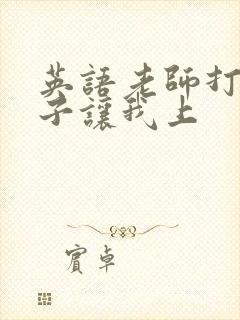 英語老師打
子讓我上
賓卓